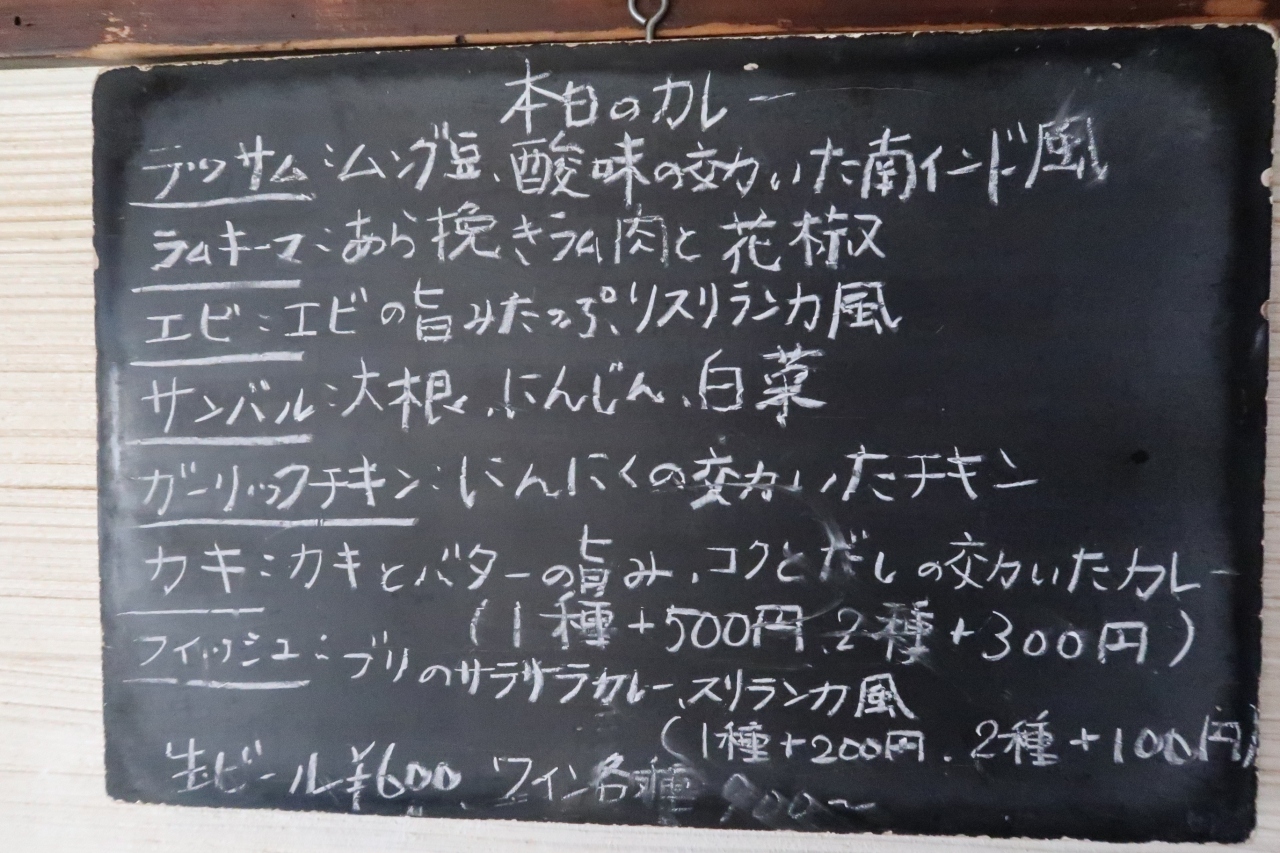 本日のカレー
ラッサム:ムング豆、酸味の効いた南インド風
ラムキーマ:あら挽きラム肉と花椒
エビ:エビの旨みたっぷりスリランカ風
サンバル:大根、にんじん、白菜
ガーリックチキン:にんにくの効いたチキン
カキ:カキとバターの旨み、コクとだしの効いたカレー
(1種+500円、2種+300円)
フィッシュ:ブリのサラサラカレー、スリランカ風
(1種+200円、2種+100円)
生ビール¥600、ワイン各種